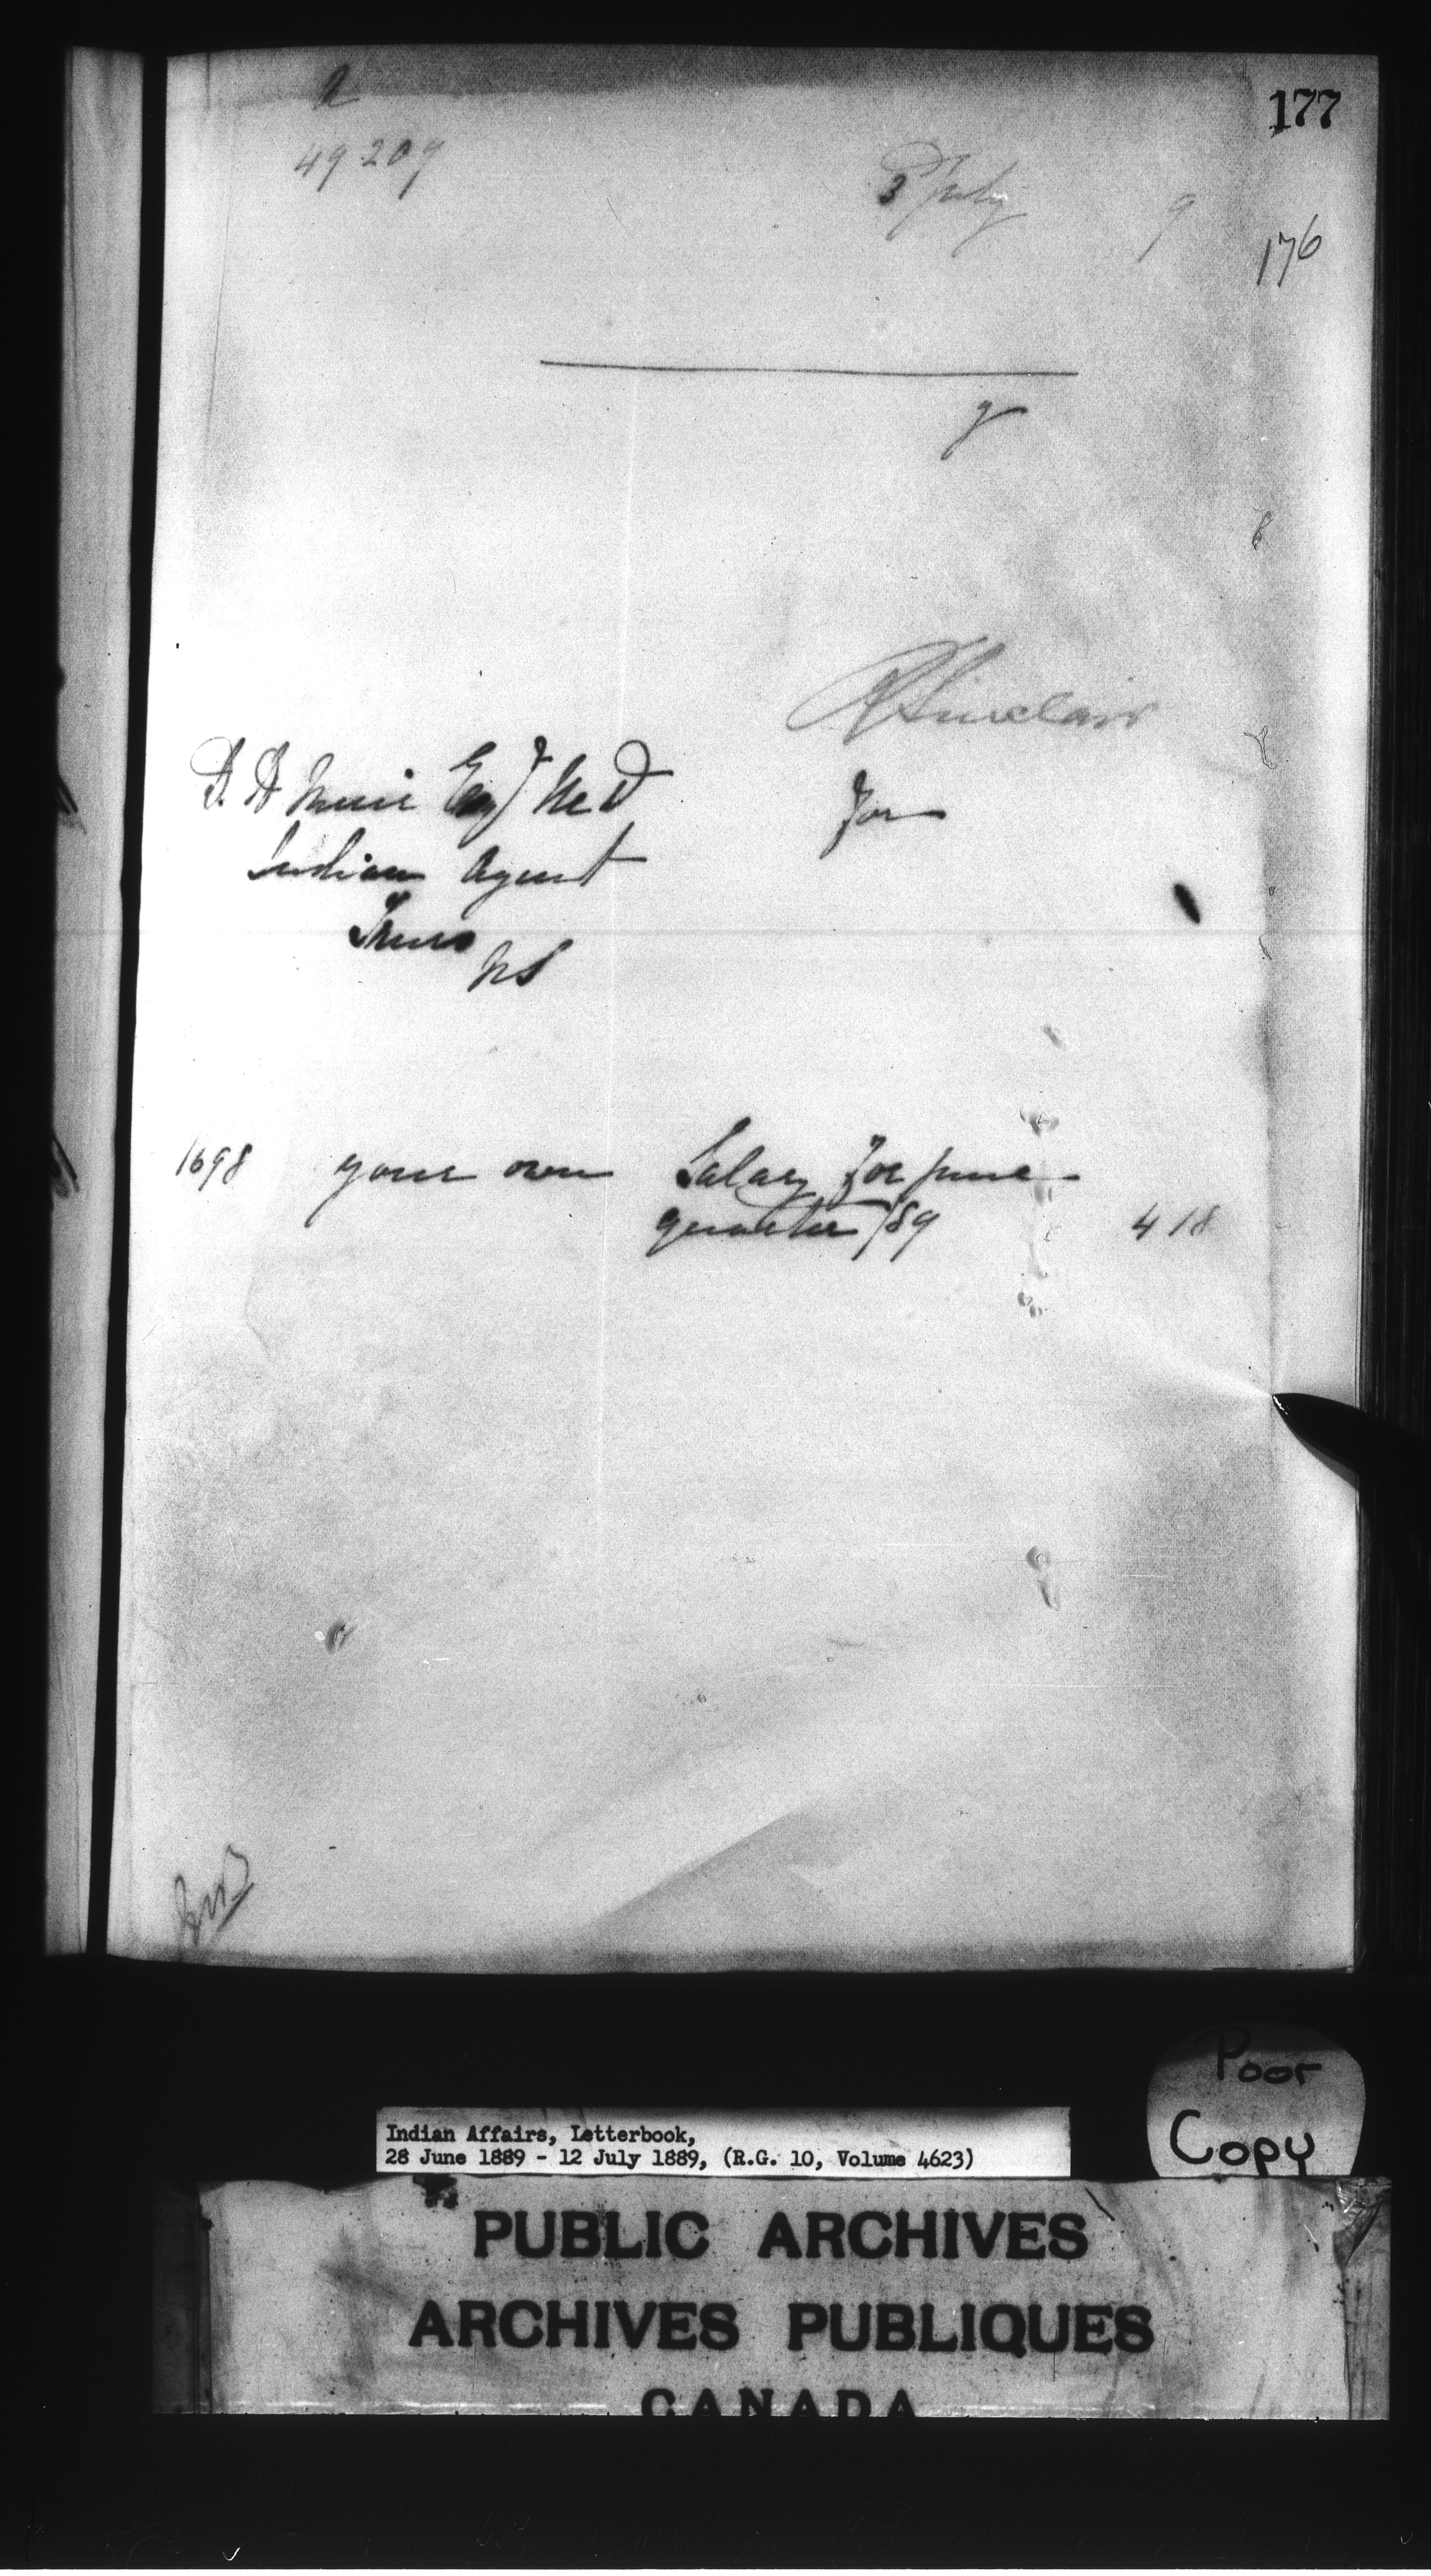 177
49209
3 July 9
176
R Sinclair
D. A Muir Esq M D for
Indian Agent
Truro
NS
1698 your own Salary for June
quarter /89 4 18
Poor
Copy
Indian Affairs, Letterbook,
28 June 1889 - 12 July 1889, (R.G. 10, Volume 4623)
PUBLIC ARCHIVES
ARCHIVES PUBLIQUES
CANADA